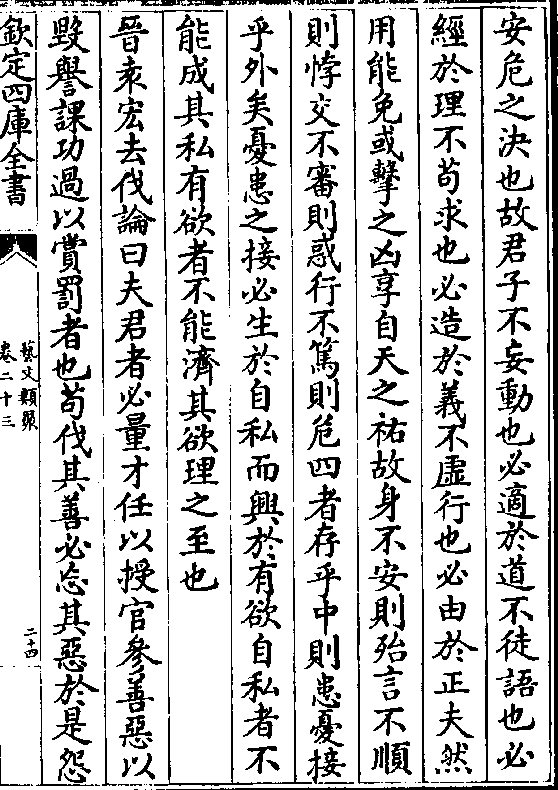 安危之決也故君子不妄動也必適於道不徒語也必
經於理不苟求也必造於義不虛行也必由於正夫然
用能免或擊之凶享自天之祐故身不安則殆言不順
則悖交不審則惑行不篤則危四者存乎中則患憂接
乎外矣憂患之接必生於自私而興於有欲自私者不
能成其私有欲者不能濟其欲理之至也
晉袁宏去伐論曰夫君者必量才任以授官參善惡以
毀譽課功過以賞罰者也苟伐其善必忘其惡於是怨
欽定四庫全書
藝文類聚
卷二十三
二十四